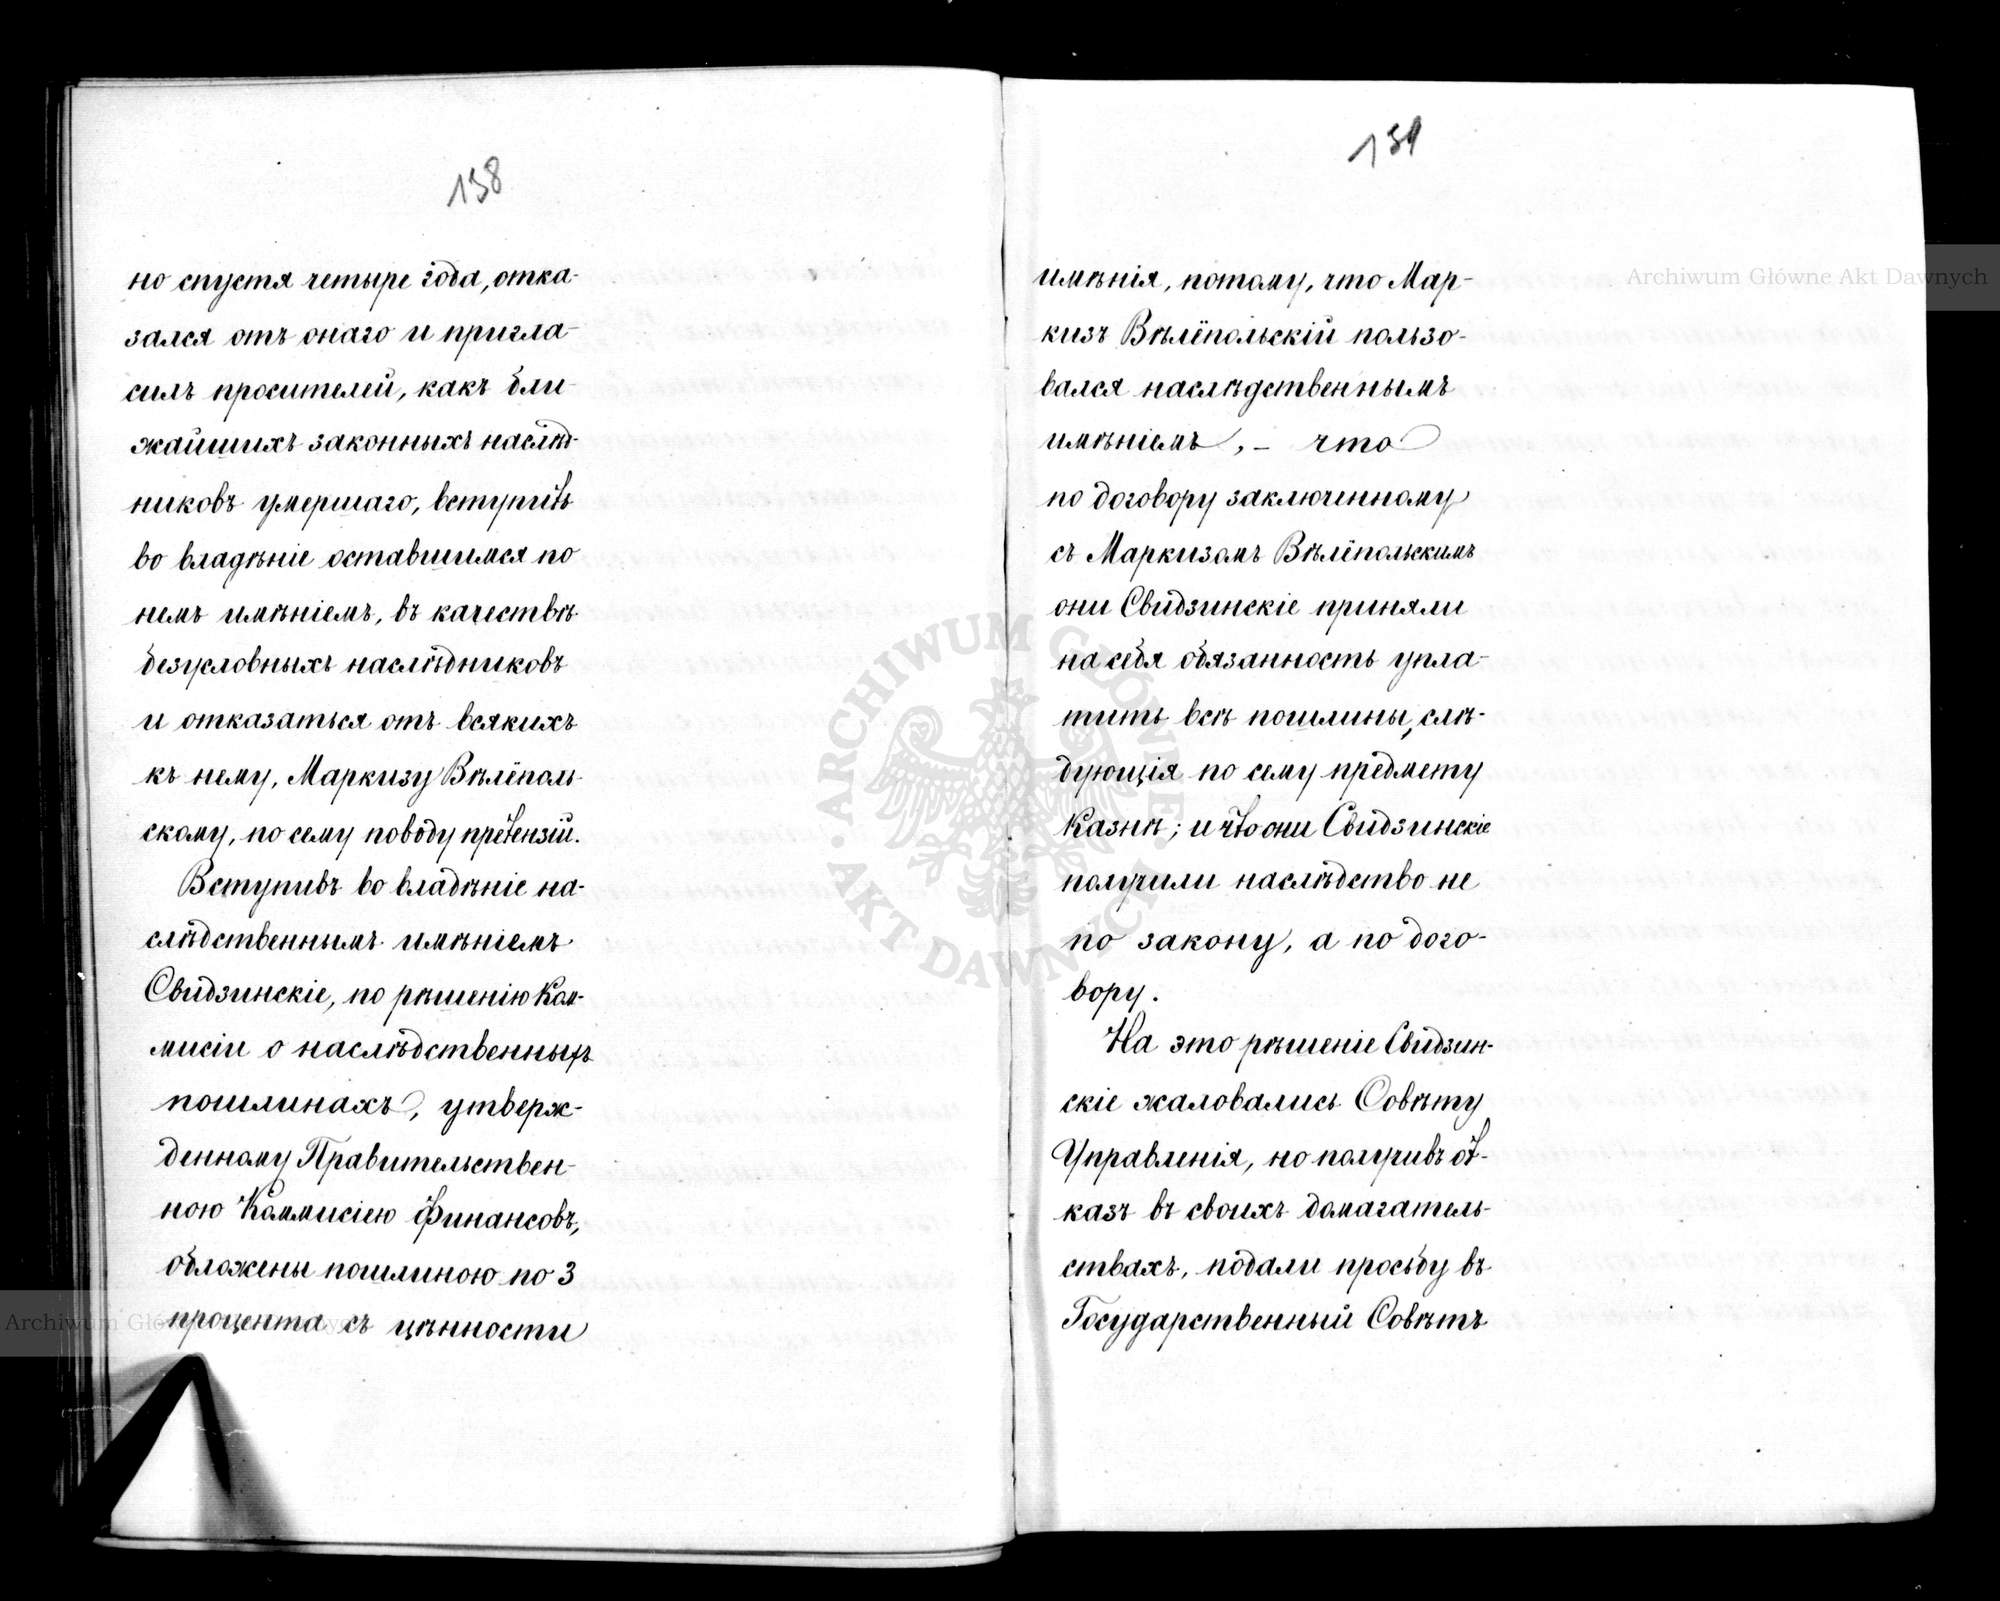 138
но спустя четыре года, отка-
зался отъ онаго и пригла-
силъ просителей, какъ бли-
жайшихъ законныхъ наслѣд-
никовъ умершаго, вступить
во владѣніе оставшимся по
немъ имѣніемъ, въ качествѣ
безусловныхъ наслѣдниковъ
и отказаться отъ всякихъ
къ нему, Маркизу Вѣлёполь-
скому, по сему поводу претензій.
Вступивъ во владѣніе на-
слѣдственнымъ имѣніемъ
Свидзинскіе, по рѣшенію Ком-
мисіи о наслѣдственныхъ
пошлинахъ, утверж-
денному Правительствен-
ною Коммисіею Финансовъ,
обложены пошлиною по 3
процента съ цѣнности
139
имѣнія, потому, что Мар-
кизъ Вѣлёпольскій пользо-
вался наслѣдственнымъ
имѣніемъ, – что
по договору заключенному
съ Маркизомъ Вѣлёпольскимъ
они Свидзинскіе приняли
на себя обязанность упла-
тить всѣ пошлины, слѣ-
дующія по сему предмету
Казнѣ; и что они Свидзинскіе
получили наслѣдство не
по закону, а по дого-
вору.
На это рѣшеніе Свидзин-
скіе жаловались Совѣту
Управленія, но получивъ от-
казъ въ своихъ домагатель-
ствахъ, подали просьбу въ
Государственный Совѣтъ
Archiwum Główne Akt Dawnych
Archiwum Główne Akt Dawnych
ARCHIWUM GŁÓWNE AKT DAWNYCH